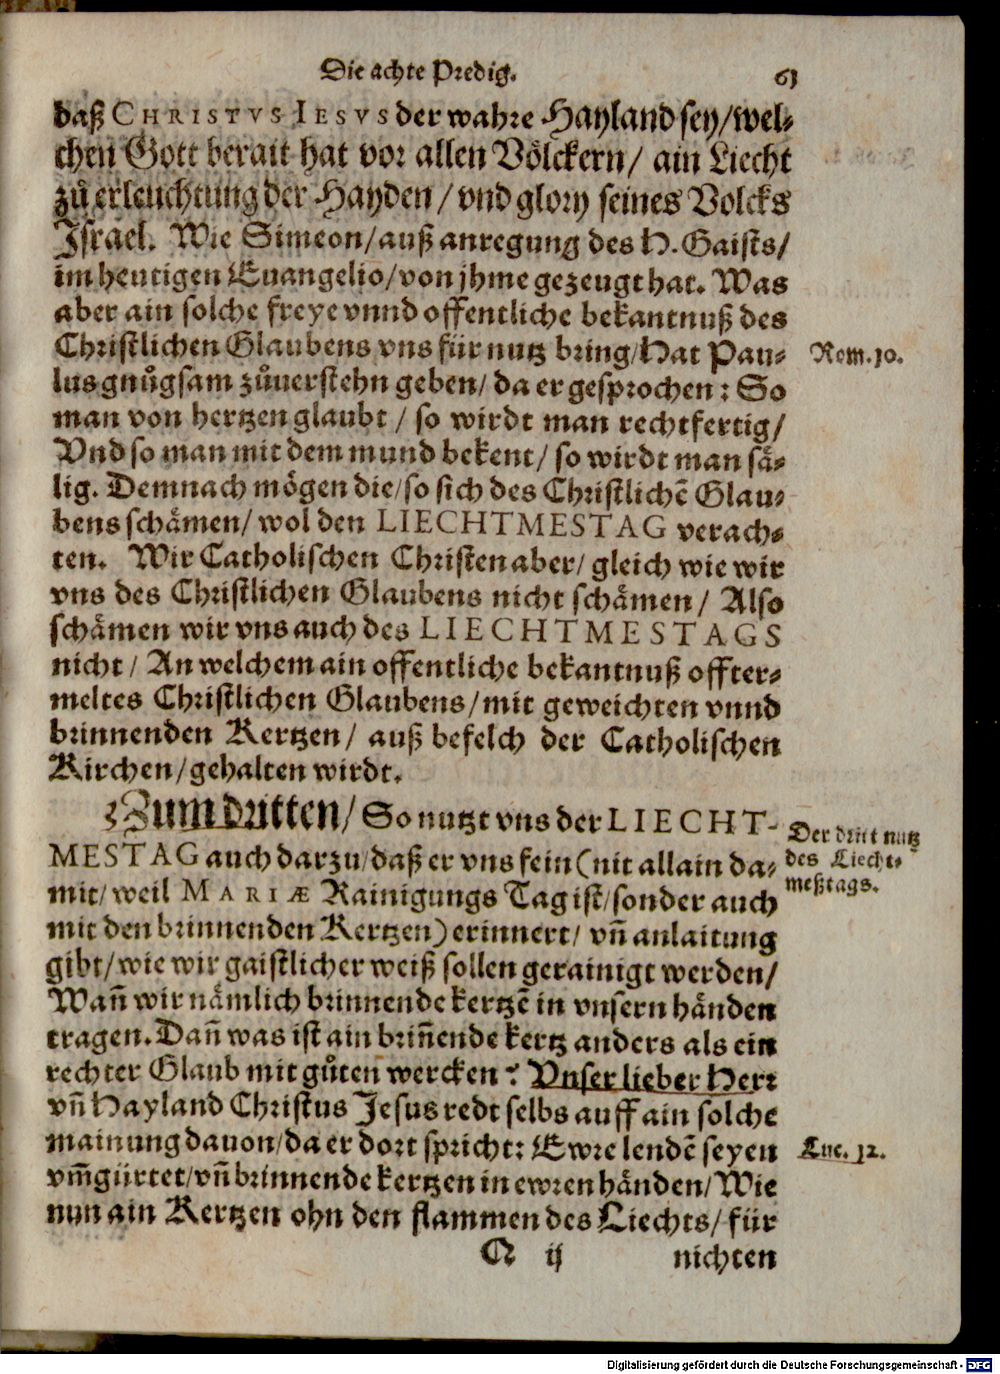 Die achte Predig.
61
daß CHRISTVS IESVS der wahre Hayland sey/wel-
chen Gott berait hat vor allen Völckern/ ain Liecht
zů erleuchtung der Hayden/ vnd glory seines Volcks
Israel. Wie Simeon/auß anregung des H. Gaists/
im heutigen Euangelio/von jhme gezeugt hat. Was
aber ain solche freye vnnd offentliche bekantnuß des
Christlichen Glaubens vns für nutz bring/Hat Pau-
Rom. 10.
lus gnůgsam zůuerstehn geben/ da er gesprochen: So
man von hertzen glaubt/ so wirdt man rechtfertig/
Vnd so man mit dem mund bekent/ so wirdt man sä-
lig. Demnach mögen die/so sich des Christlichē Glau-
bens schämen/ wol den LIECHTMESTAG verach-
ten. Wir Catholischen Christen aber/ gleich wie wir
vns des Christlichen Glaubens nicht schämen/ Also
schämen wir vns auch des LIECHTMESTAGS
nicht/ An welchem ain offentliche bekantnuß offter-
meltes Christlichen Glaubens/mit geweichten vnnd
brinnenden Kertzen/ auß befelch der Catholischen
Kirchen/gehalten wirdt.
Zum dritten/ So nutzt vns der LIECHT-
Der drit nutz
MESTAG auch darzu/daß er vns fein (nit allain da-
des Liecht-
mit/ weil MARIÆ Rainigungs Tag ist/sonder auch
meßtags.
mit den brinnenden Kertzen) erinnert/ vñ anlaitung
gibt/wie wir gaistlicher weiß sollen gerainigt werden/
Wañ wir nämlich brinnende kertzē in vnsern händen
tragen. Dañ was ist ain briñende kertz anders als ein
rechter Glaub mit gůten wercken? Vnser lieber Herr
vñ Hayland Christus Jesus redt selbs auff ain solche
mainung dauon/da er dort spricht: Ewre lendē seyen
Luc. 12.
vm̃gürtet/vñ brinnende kertzen in ewren händen/Wie
nun ain Kertzen ohn den flammen des Liechts/ für
Q ij
nichten
Digitalisierung gefördert durch die Deutsche Forschungsgemeinschaft - DFG